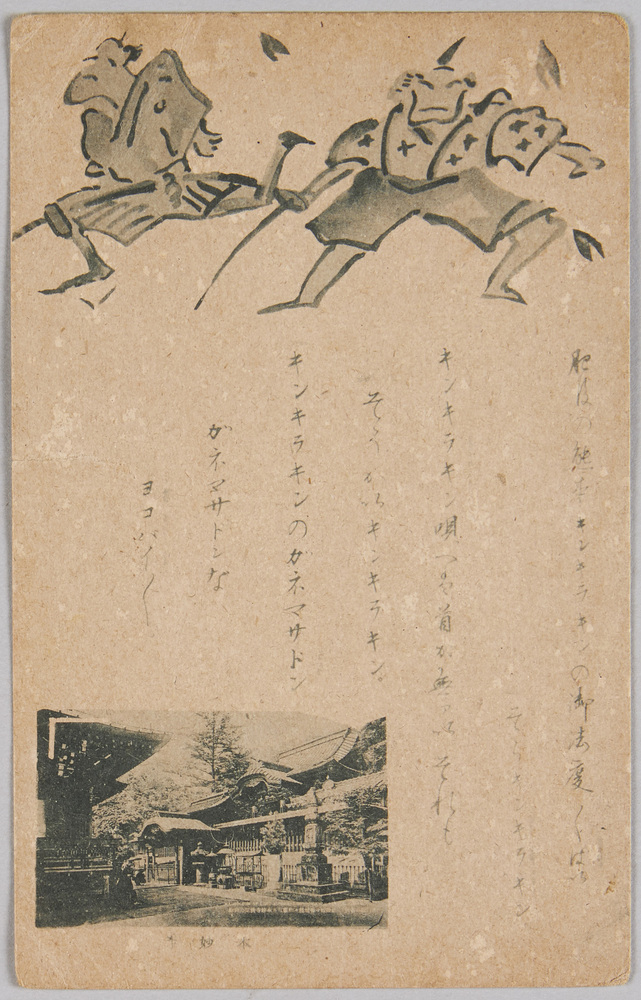 肥後の熊本キンキラキンの御法度 は
キンキラキン
キンキラキン唄へば首が無 それも
そうかいキンキラキン。
キンキラキンのガネマサドン
ガネマサドンな
ヨコバイ〱
水 妙